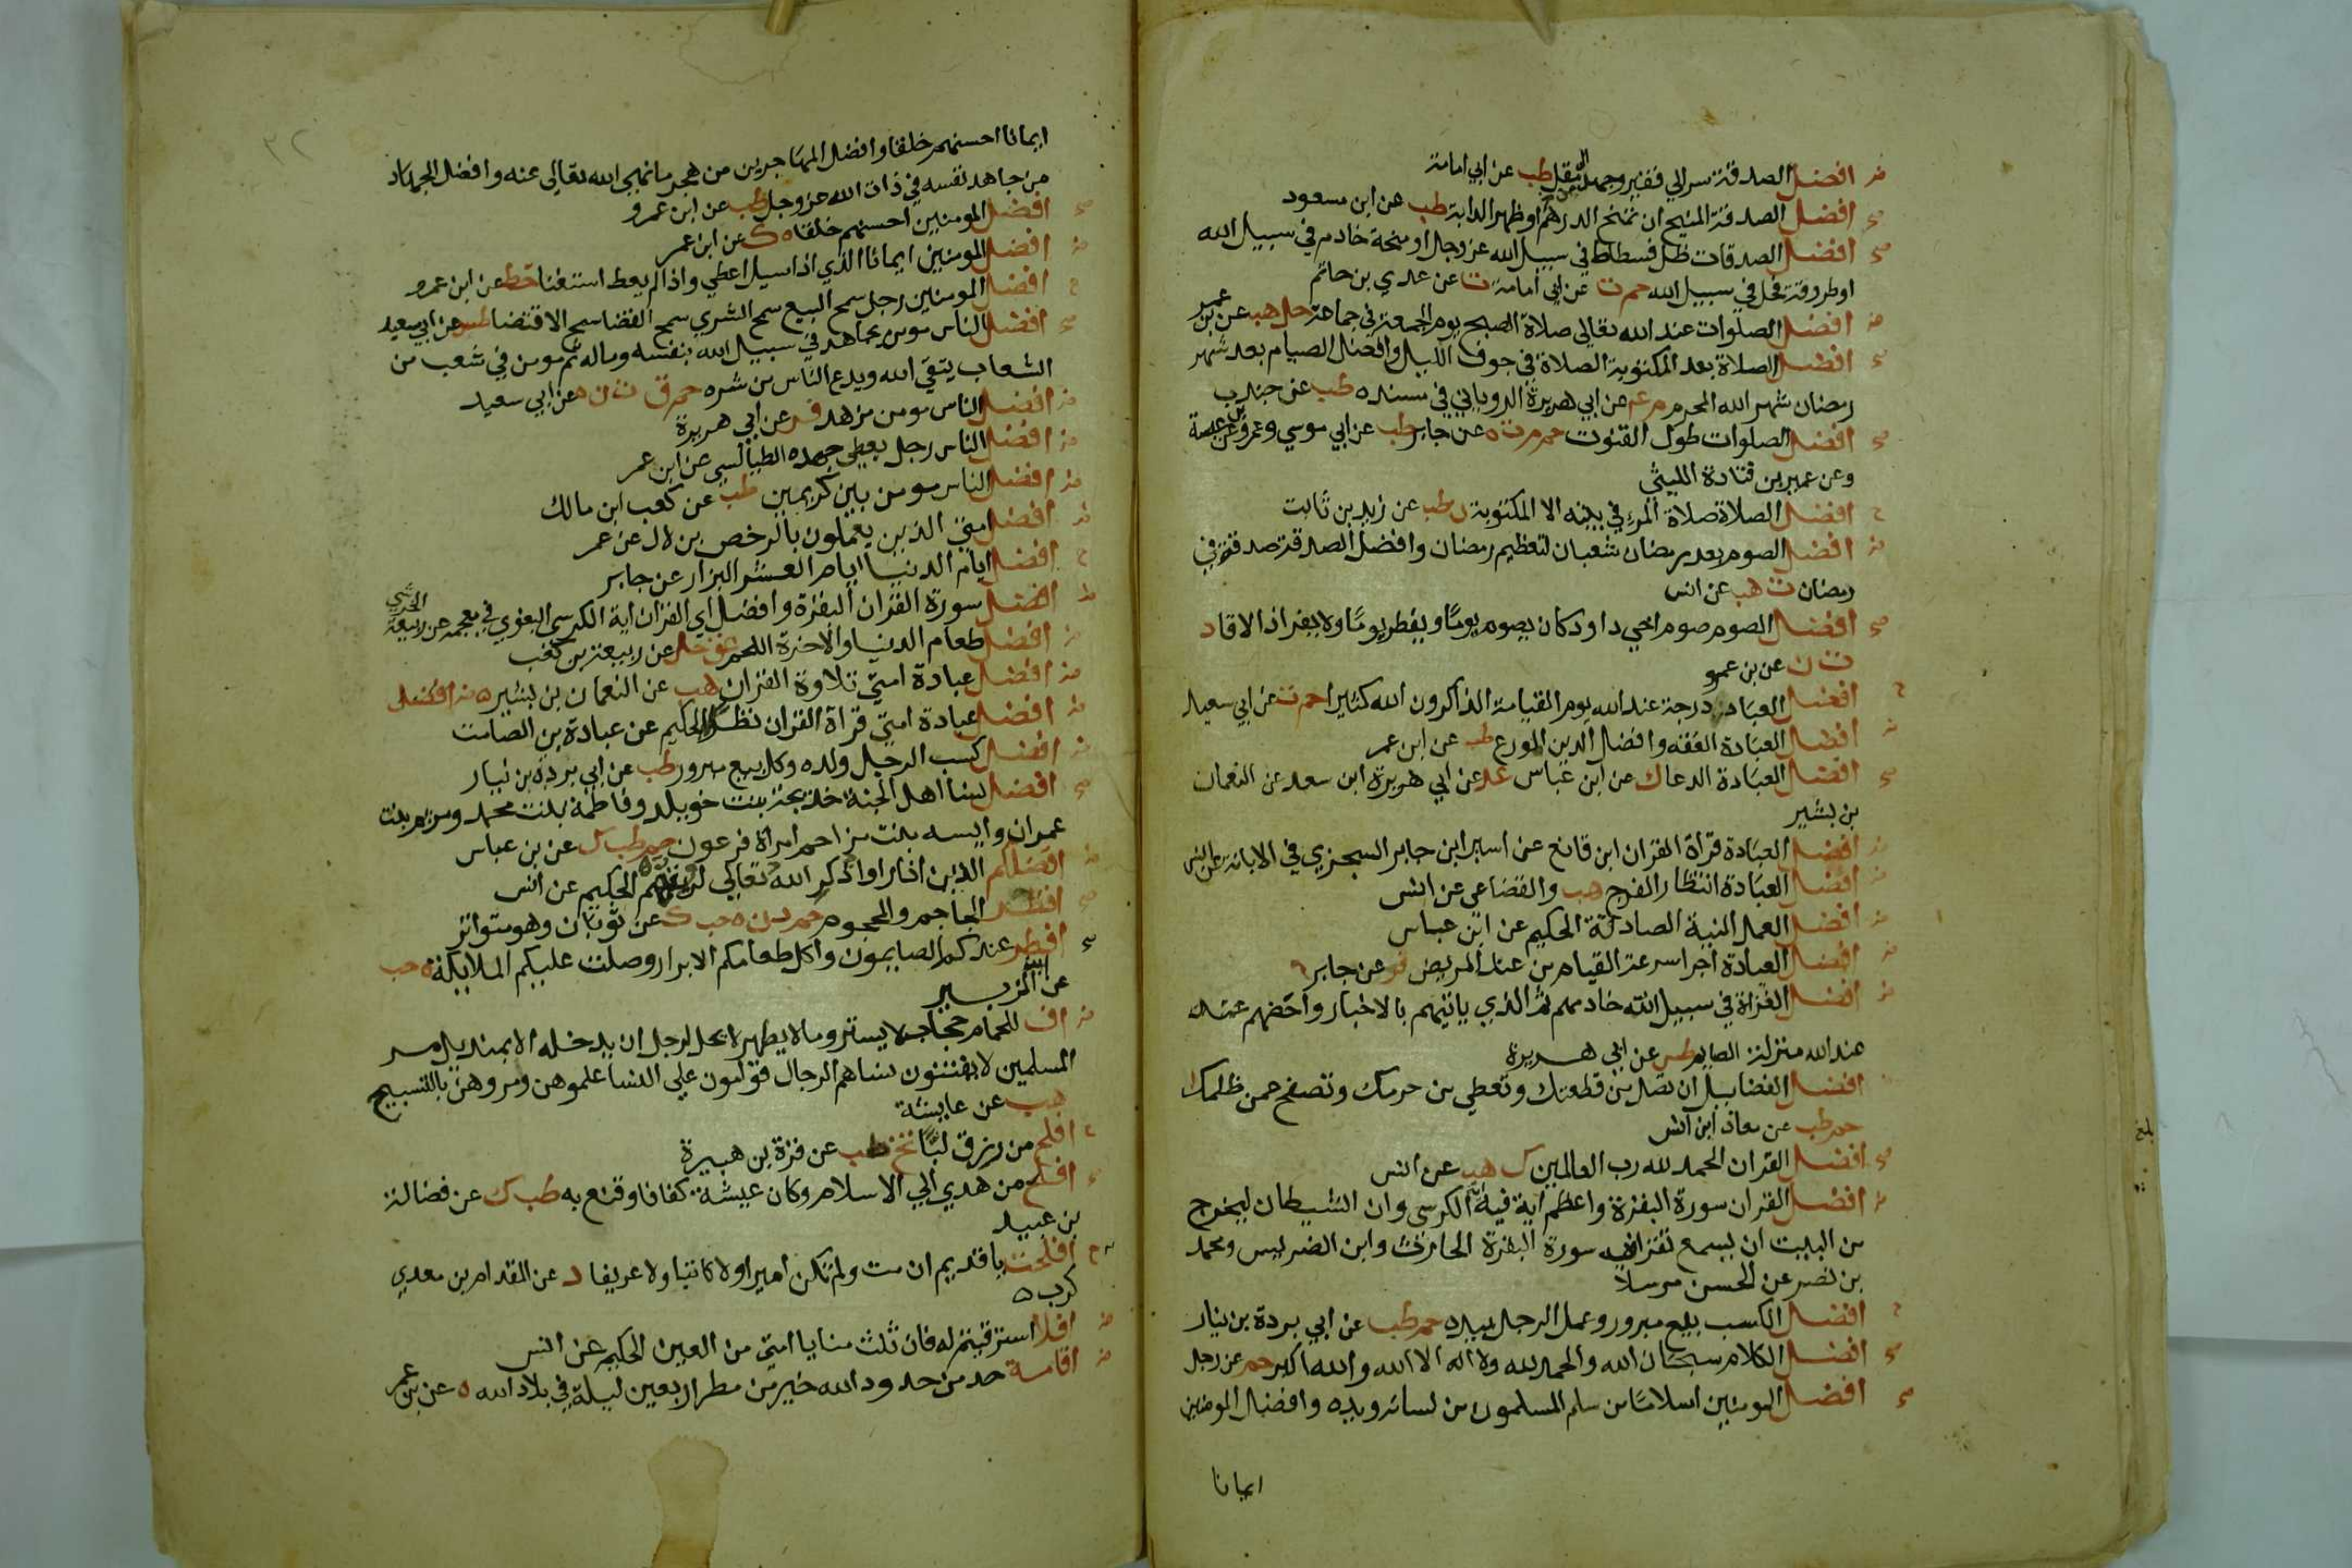 افضل الصدقة سر الي فقير وجهد المقل طب عن ابي امامة
افضل الصدقة المنيح ان تمنح الدرهم او ظهر الدابة طب عن ابن مسعود
افضل الصدقات ظل فسطاط في سبيل الله عز وجل او منحة خادم في سبيل الله
او طروقة فحل في سبيل الله حم ت عن ابي امامة ت عن عدي بن حاتم
افضل الصلوات عند الله تعالي صلاة الصبح يوم الجمعة في جماعة حل هب عن بن عمر
افضل الصلاة بعد المكتوبة الصلاة في جوف الليل وافضل الصيام بعد شهر
رمضان شهر الله المحرم م عم عن ابي هريرة الروياني في مسنده طب عن جندب
افضل الصلوات طول القنوت حم م ت ه عن جابر طب عن ابي موسي وعمرو بن عبسة
وعن عمير بن قتادة الليثي
افضل الصلاة صلاة المرء في بيته الا المكتوبة ن طب عن زيد بن ثابت
افضل الصوم بعد رمضان شعبان لتعظيم رمضان وافضل الصدقة صدقة في
رمضان ت هب عن انس
افضل الصوم صوم اخي داود كان يصوم يوما ويفطر يوما ولا يفر اذا لاقا
ت ن عن بن عمرو
افضل العباد درجة عند الله يوم القيامة الذاكرون الله كثيرا حم ت عن ابي سعيد
افضل العبادة الفقه وافضل الدين الورع طب عن ابن عمر
افضل العبادة الدعا ك عن ابن عباس عد عن ابي هريرة ابن سعد عن النعمان
بن بشير
افضل العبادة قراة القران ابن قانع عن اسير ابن جابر السجزي في الابانة عن انس
افضل العبادة انتظار الفرج هب والقضاعي عن انس
افضل العمل النية الصادقة الحكيم عن ابن عباس
افضل العيادة اجرا سرعة القيام من عند المريض فر عن جابر
افضل الغزاة في سبيل الله خادمهم ثم الذي ياتيهم بالاخبار واخصهم
عند الله منزلة الصايم طس عن ابي هريرة
افضل الفضايل ان تصل من قطعك وتعطي من حرمك وتصفح عمن ظلمك
حم طب عن معاذ ابن انس
افضل القران الحمد لله رب العالمين ك هب عن انس
افضل القران سورة البقرة واعظم اية فيه اية الكرسي وان الشيطان ليخرج
من البيت ان يسمع تقرا فيه سورة البقرة الحارث وابن الضريس ومحمد
بن نصر عن الحسن مرسلا
افضل الكسب بيع مبرور وعمل الرجل بيده حم طب عن ابي بردة بن نيار
افضل الكلام سبحان الله والحمد لله ولا اله الا الله والله اكبر حم عن رجل
افضل المومنين اسلاما من سلم المسلمون من لسانه ويده وافضل المومنين
ايمانا
٣٢
ايمانا احسنهم خلقا وافضل المهاجرين من هجر ما نهي الله تعالي عنه وافضل الجهاد
من جاهد نفسه في ذات الله عز وجل طب عن ابن عمرو
افضل المومنين احسنهم خلقا ه ك عن ابن عمر
افضل المومنين ايمانا الذي اذا سيل اعطي واذا لم يعط استغنا خط عن ابن عمرو
افضل المومنين رجل سمح البيع سمح الشري سمح القضا سمح الاقتضا طس عن ابي سعيد
افضل الناس مومن مجاهد في سبيل الله بنفسه وماله ثم مومن في شعب من
الشعاب يتقي الله ويدع الناس من شره حم ق ت ن ه عن ابي سعيد
افضل الناس مومن مزهد فر عن ابي هريرة
افضل الناس رجل يعطي جهده الطيالسي عن ابن عمر
افضل الناس مومن بين كريمين طب عن كعب ابن مالك
افضل امتي الذين يعملون بالرخص بن لال عن عمر
افضل ايام الدنيا ايام العشر البزار عن جابر
افضل سورة القران البقرة وافضل اي القران اية الكرسي البغوي في معجمه عن ربيعة الجرشي
افضل طعام الدنيا والاخرة اللحم عق حل عن ربيعة بن كعب
افضل عبادة امتي تلاوة القران هب عن النعمان بن بشير ه افضل
افضل عبادة امتي قراة القران نظرا الحكيم عن عبادة بن الصامت
افضل كسب الرجل ولده وكل بيع مبرور طب عن ابي بردة بن نيار
افضل نسا اهل الجنة خديجة بنت خويلد وفاطمة بنت محمد ومريم بنت
عمران واسيه بنت مزاحم امراة فرعون حم طب ك عن بن عباس
افضلكم الذين اذا راوا ذكر الله تعالي لرويتهم الحكيم عن انس
افطر الحاجم والمحجوم حم د ن ه حب ك عن ثوبان وهو متواتر
افطر عندكم الصايمون واكل طعامكم الابرار وصلت عليكم الملايكة ه حب
عن ابن الزبير
اف للحمام حجاب لا يستر وما لا يطهر لا يحل لرجل ان يدخله الا بمنديل مر
المسلمين لا يفتنون نساهم الرجال قوامون علي النسا علموهن ومروهن بالتسبيح
هب عن عايشة
افلح من رزق لبا تخ طب عن قرة بن هبيرة
افلح من هدي الي الاسلام وكان عيشه كفافا وقنع به طب ك عن فضالة
بن عبيد
افلحت يا قديم ان مت ولم تكن اميرا ولا كاتبا ولا عريفا د عن المقدام بن معدي
كرب ه
افلا استرقيتم له فان ثلث منايا امتي من العين الحكيم عن انس
اقامة حد من حدود الله خير من مطر اربعين ليلة في بلاد الله ه عن بن عمر